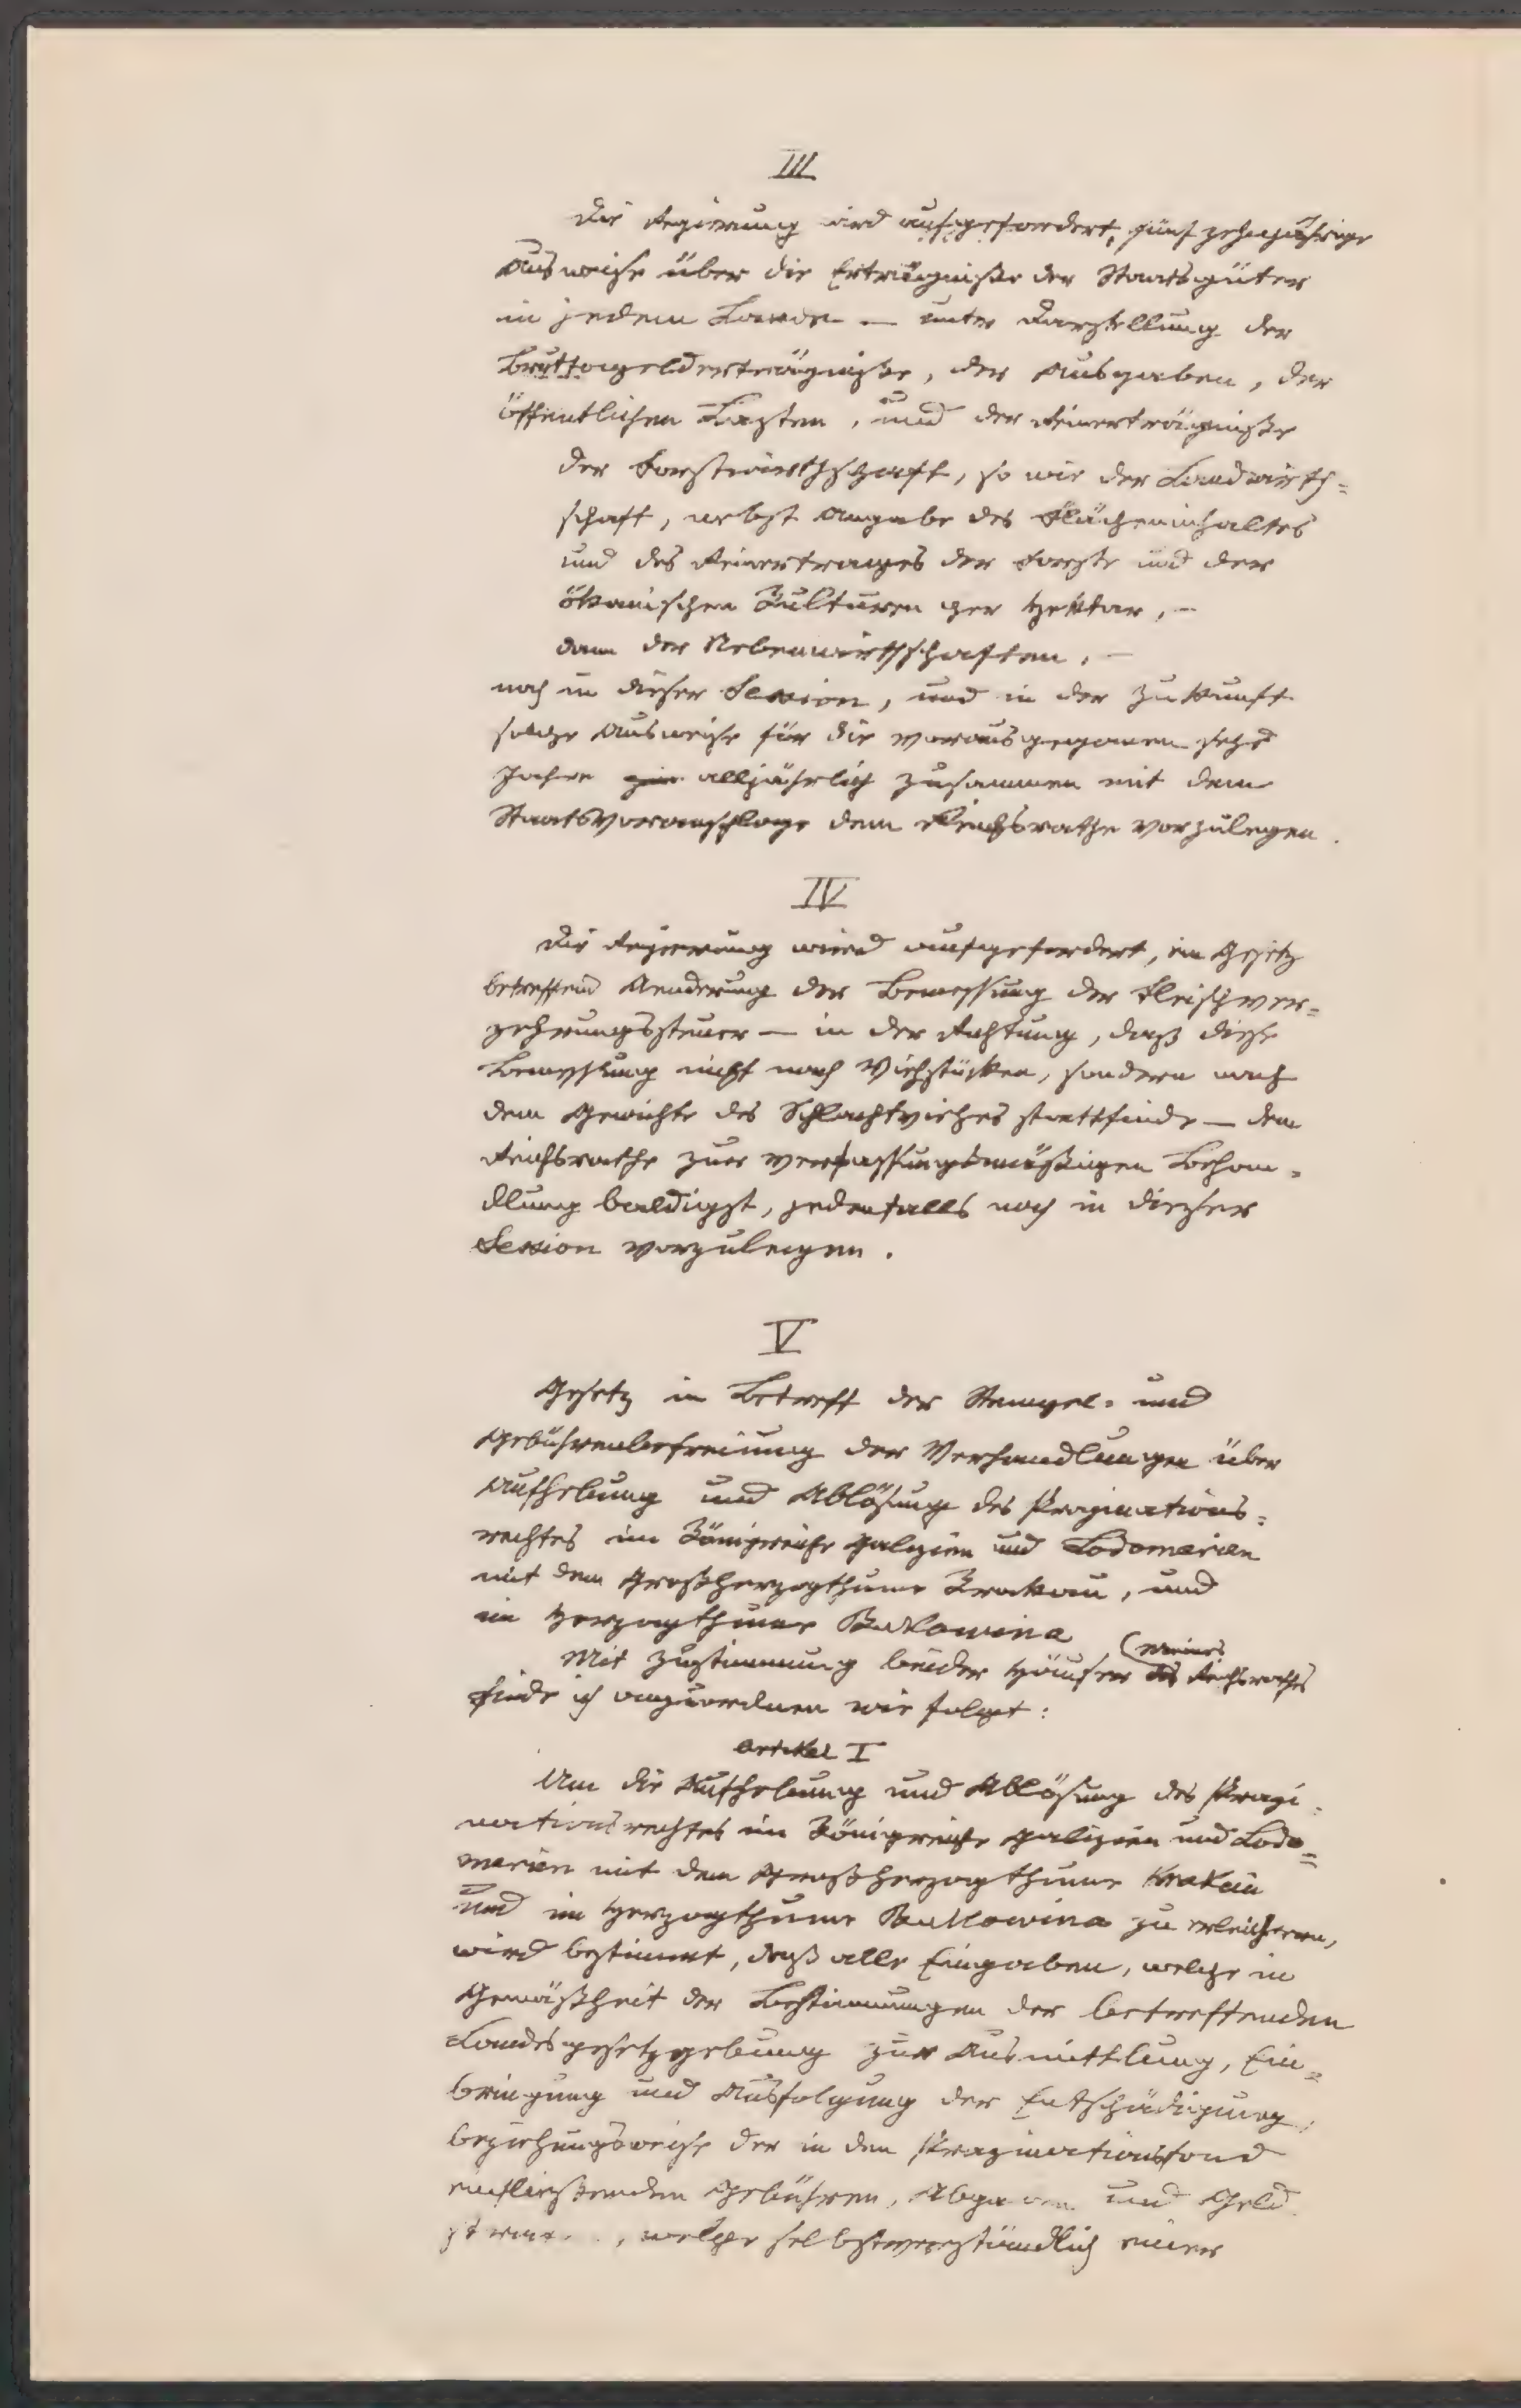 III
Die Regierung wird aufgefordert, fünfzehnjährige
Ausweise über die Erträgniße der Staatsgüter
in jedem Lande — unter Darstellung der
Bruttogelderträgniße, der Ausgaben, der
öffentlichen Lasten, und der Reinerträgniße
der Forstwirthschaft, so wie der Landwirth=
schaft, nebst Angabe des Flächeninhaltes
und des Reinertrages der Forste und der
ökonischen Kulturen per Hektar, –
dann der Nebenwirthschaften, –
noch in dieser Session, und in der Zukunft
solche Ausweise für die vorausgegangenen sechs
Jahre alljährlich zusammen mit dem
Staatsvoranschlage dem Reichsrathe vorzulegen.
IV
Die Regierung wird aufgefordert, ein Gesetz
betreffend Aenderung der Bemessung der Fleischver=
zehrungssteuer — in der Richtung, daß diese
Bemessung nicht nach Viehstücken, sondern nach
dem Gewichte des Schlachtviehes stattfinde — dem
Reichsrathe zur verfassungsmäßigen Behan=
dlung baldigst, jedenfalls noch in dieser
Session vorzulegen.
V
Gesetz in Betreff der Stempel= und
Gebührenbefreiung der Verhandlungen über
Aufhebung und Ablösung des Propinations=
rechtes im Königreiche Galizien und Lodomerien
mit dem Großherzogthume Krakau, und
im Herzogthume Bukowina
Mit Zustimmung beider Häuser des Reichsrathes
finde ich anzuordnen wie folgt:
Artikel I
Um die Aufhebung und Ablösung des Propi=
nationsrechtes im Königreiche Galizien und Lodo=
merien mit dem Großherzogthume Krakau
und im Herzogthume Bukowina zu erleichtern,
wird bestimmt, daß alle Eingaben, welche in
Gemäßheit der Bestimmungen der betreffenden
Landesgesetzgebung zur Ausmittlung, Ein=
bringung und Ausfolgung der Entschädigung,
beziehungsweise der in den Propinationsfond
einfließenden Gebühren, Abgaben und Geld
, welche selbstverständlich einer